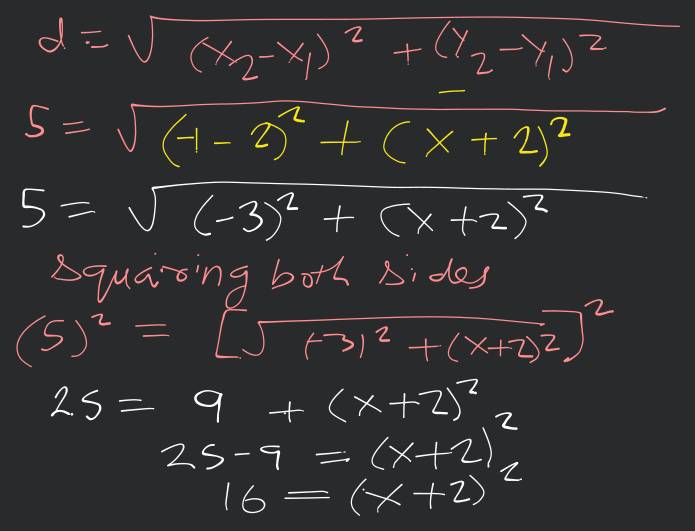 d = √(x₂-x₁)² + (y₂-y₁)²
5 = √(-1-2)² + (x+2)²
5 = √(-3)² + (x+2)²
squaring both sides
(5)² = [√(-3)² + (x+2)²]²
25 = 9 + (x+2)²
25-9 = (x+2)²
16 = (x+2)²